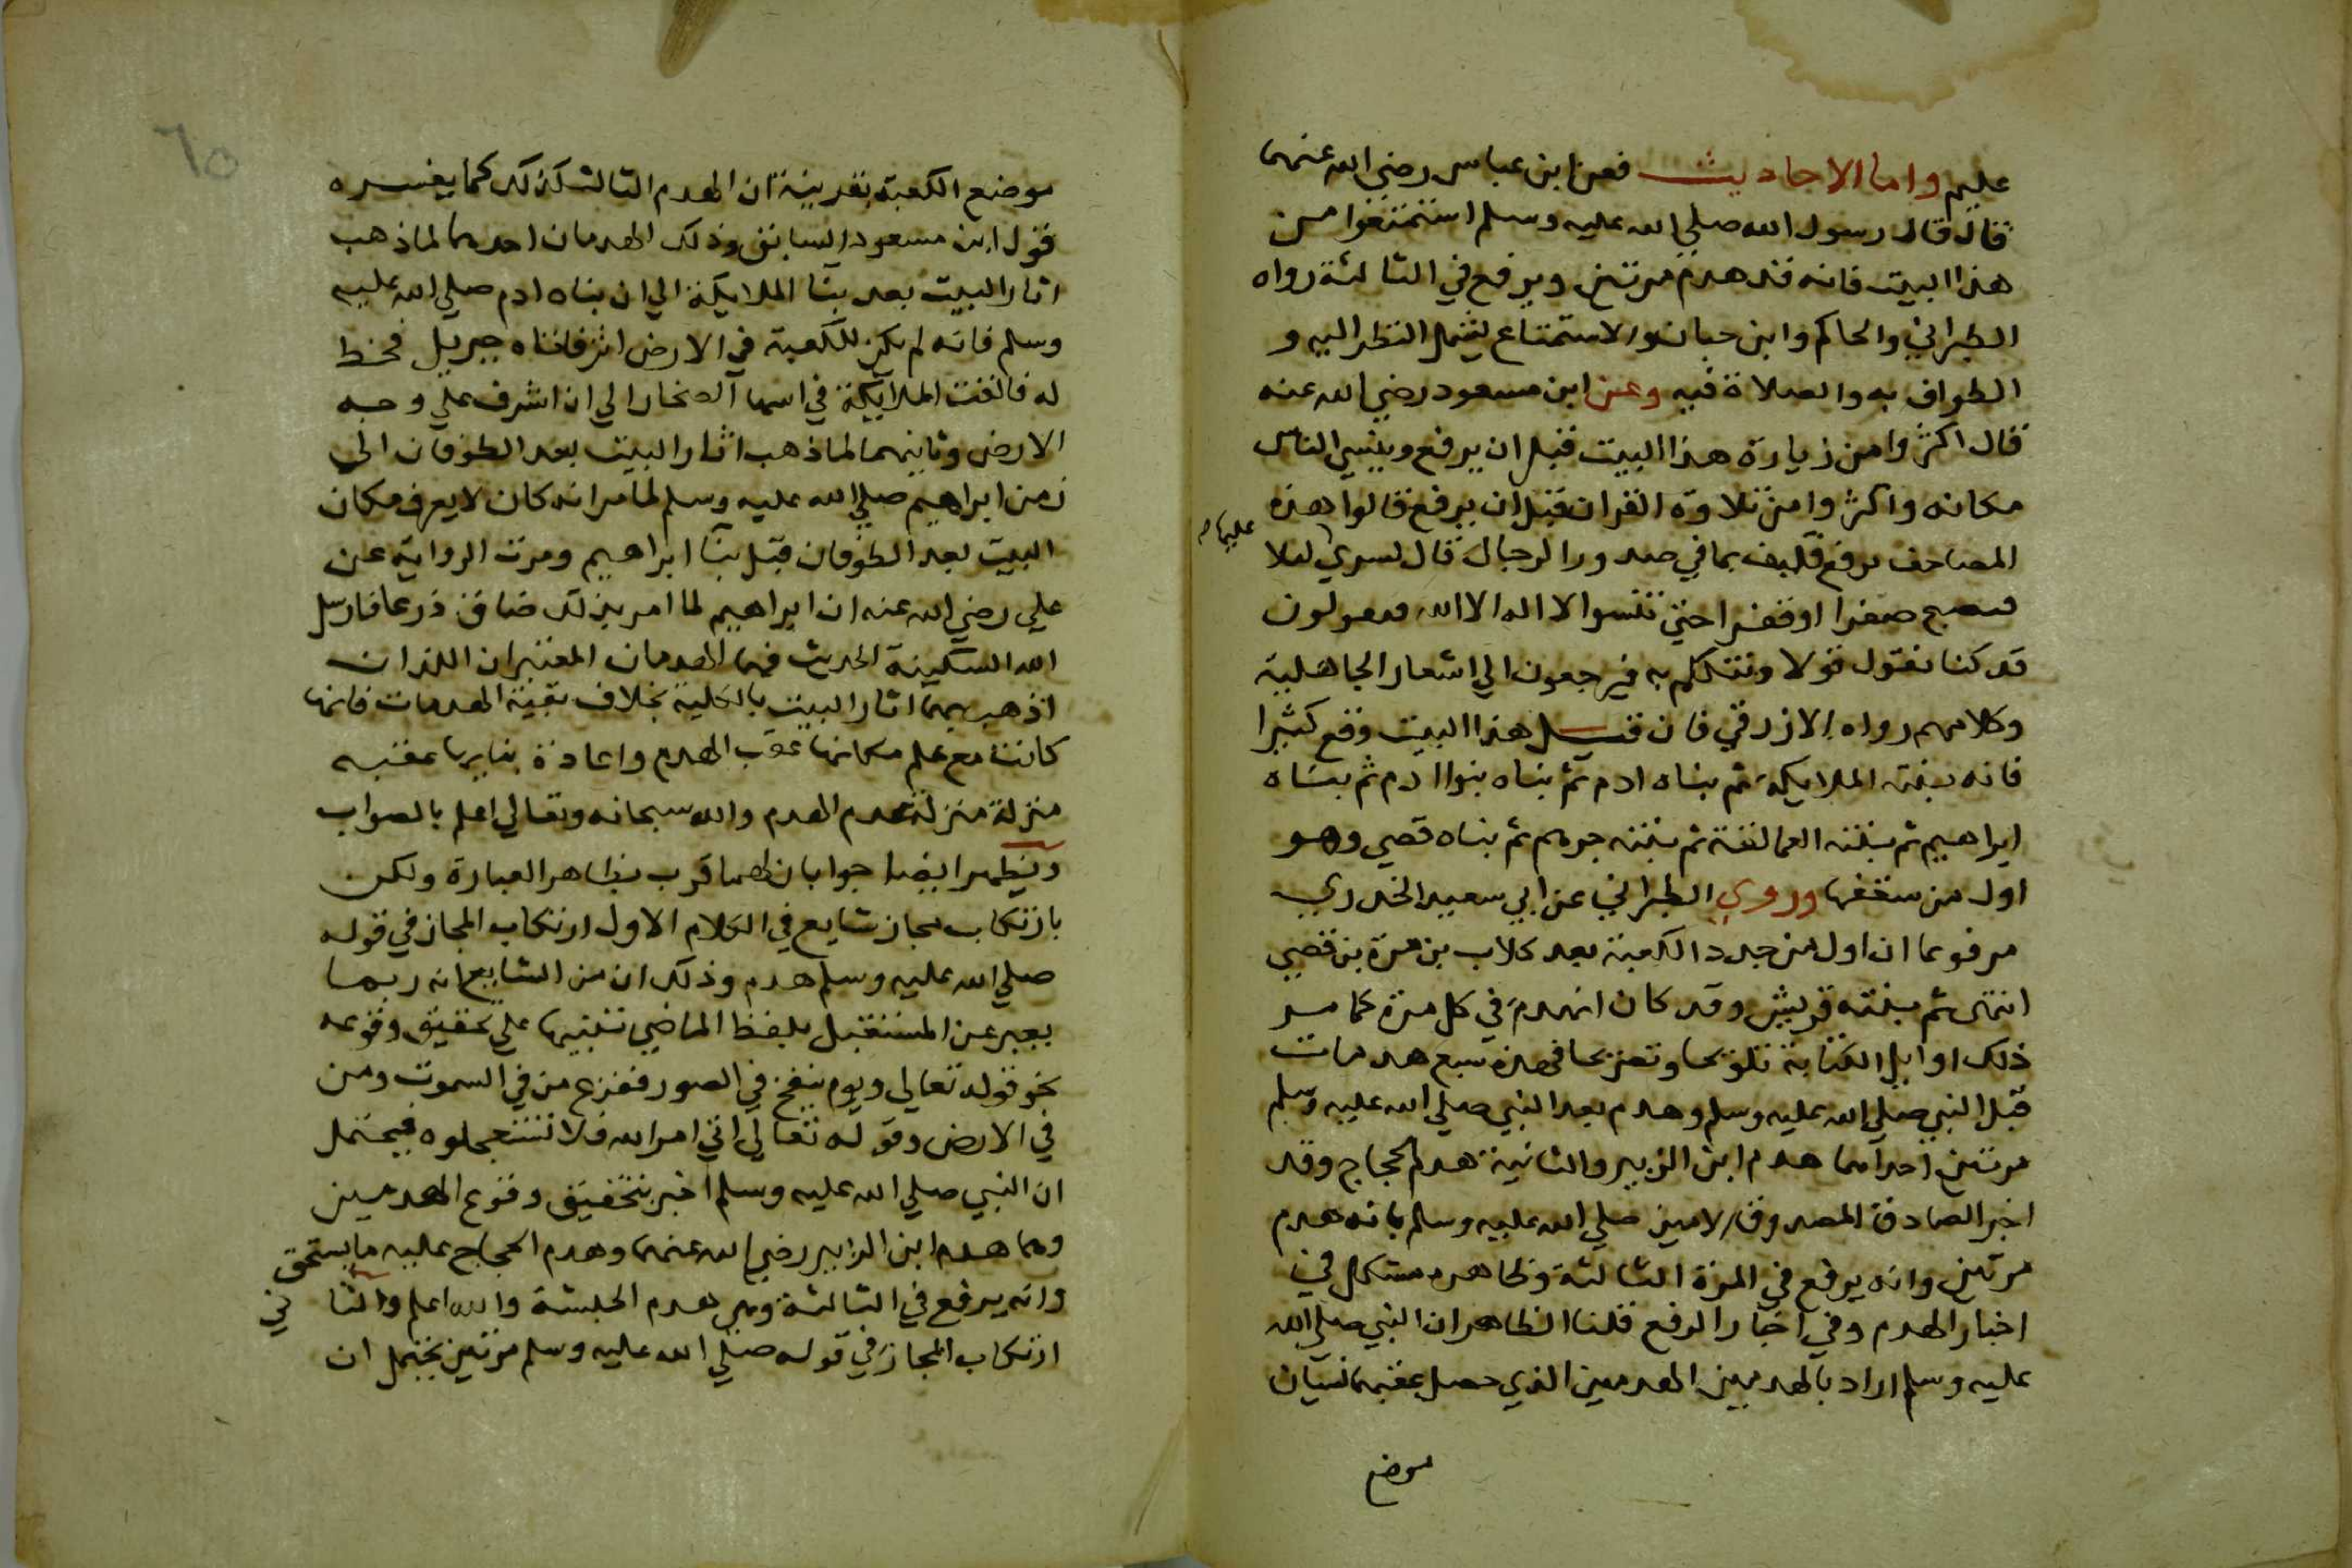 عليم واما الاحاديث فعن ابن عباس رضي الله عنهما
قال قال رسول الله صلي الله عليه وسلم استمتعوا من
هذا البيت فانه قد هدم مرتين ويرفع في الثالثة رواه
الطبراني والحاكم وابن حبان والاستمتاع يشمل النظر اليه و
الطواف به والصلاة فيه وعن ابن مسعود رضي الله عنه
قال اكثروا من زيارة هذا البيت قبل ان يرفع وينسي الناس
مكانه واكثروا من تلاوة القران قبل ان يرفع قالوا هذه
المصاحف ترفع فكيف بما في صدور الرجال قال يسري ليلا
عليها
فيصبح صفرا او قفرا حتي تنسوا لا اله الا الله فيقولون
قد كنا نقول قولا ونتكلم به فيرجعون الي اشعار الجاهلية
وكلامهم رواه الازرقي فان قيل هذا البيت وقع كثيرا
فانه بنته الملايكة ثم بناه ادم ثم بناه بنوا ادم ثم بناه
ابراهيم ثم بنته العمالقة ثم بنته جرهم ثم بناه قصي وهو
اول من سقفها وروي الطبراني عن ابي سعيد الخدري
مرفوعا ان اول من جدد الكعبة بعد كلاب بن مرة بن قصي
انتهى ثم بنته قريش وقد كان انهدم في كل مرة كما مر
ذلك اوايل الكتابة تلويحا وتصريحا فهذه سبع هدمات
قبل النبي صلي الله عليه وسلم وهدم بعد النبي صلي الله عليه وسلم
مرتين احداهما هدم ابن الزبير والثانية هدم الحجاج وقد
اخبر الصادق المصدوق الامين صلي الله عليه وسلم بانه هدم
مرتين وانه يرفع في المرة الثالثة وظاهره مشكل في
اخبار الهدم وفي اخبار الرفع قلنا الظاهر ان النبي صلي الله
عليه وسلم اراد بالهدمين الهدمين الذي حصل عقبهما نسيان
موضع
٦٥
موضع الكعبة بقرينة ان الهدم الثالث كذلك كما يفسره
قول ابن مسعود السابق وذلك الهدمان احدهما لما ذهب
اثار البيت بعد بنا الملايكة الي ان بناه ادم صلي الله عليه
وسلم فانه لم يكن للكعبة في الارض اثر فاتاه جبريل فخط
له فالقت الملايكة في اسها الصخار الي ان اشرف علي وجه
الارض وثانيهما لما ذهب اثار البيت بعد الطوفان الي
زمن ابراهيم صلي الله عليه وسلم لما مر انه كان لا يعرف مكان
البيت بعد الطوفان قبل بنا ابراهيم ومرت الرواية عن
علي رضي الله عنه ان ابراهيم لما امر بذلك ضاق ذرعا فارسل
الله السكينة الحديث فهما الهدمان المعتبران اللذان
اذهب بهما اثار البيت بالكلية بخلاف بقية الهدمات فانها
كانت مع علم مكانها عقب الهدم واعادة بنايها عقبه
منزلة منزلة عدم الهدم والله سبحانه وتعالي اعلم بالصواب
ويظهر ايضا جوابان لهما قرب بظاهر العبارة ولكن
بارتكاب مجاز شايع في الكلام الاول ارتكاب المجاز في قوله
صلي الله عليه وسلم هدم وذلك ان من الشايع انه ربما
يعبر عن المستقبل بلفظ الماضي تنبيها علي تحقيق وقوعه
نحو قوله تعالي ويوم ينفخ في الصور ففزع من في السموت ومن
في الارض وقوله تعالي اتي امر الله فلا تستعجلوه فيحتمل
ان النبي صلي الله عليه وسلم اخبر بتحقيق وقوع الهدمين
وهما هدم ابن الزبير رضي الله عنهما وهدم الحجاج عليه ما يستحق
وانه يرفع في الثالثة وهي هدم الحبشة والله اعلم والثاني
ارتكاب المجاز في قوله صلي الله عليه وسلم مرتين يحتمل ان